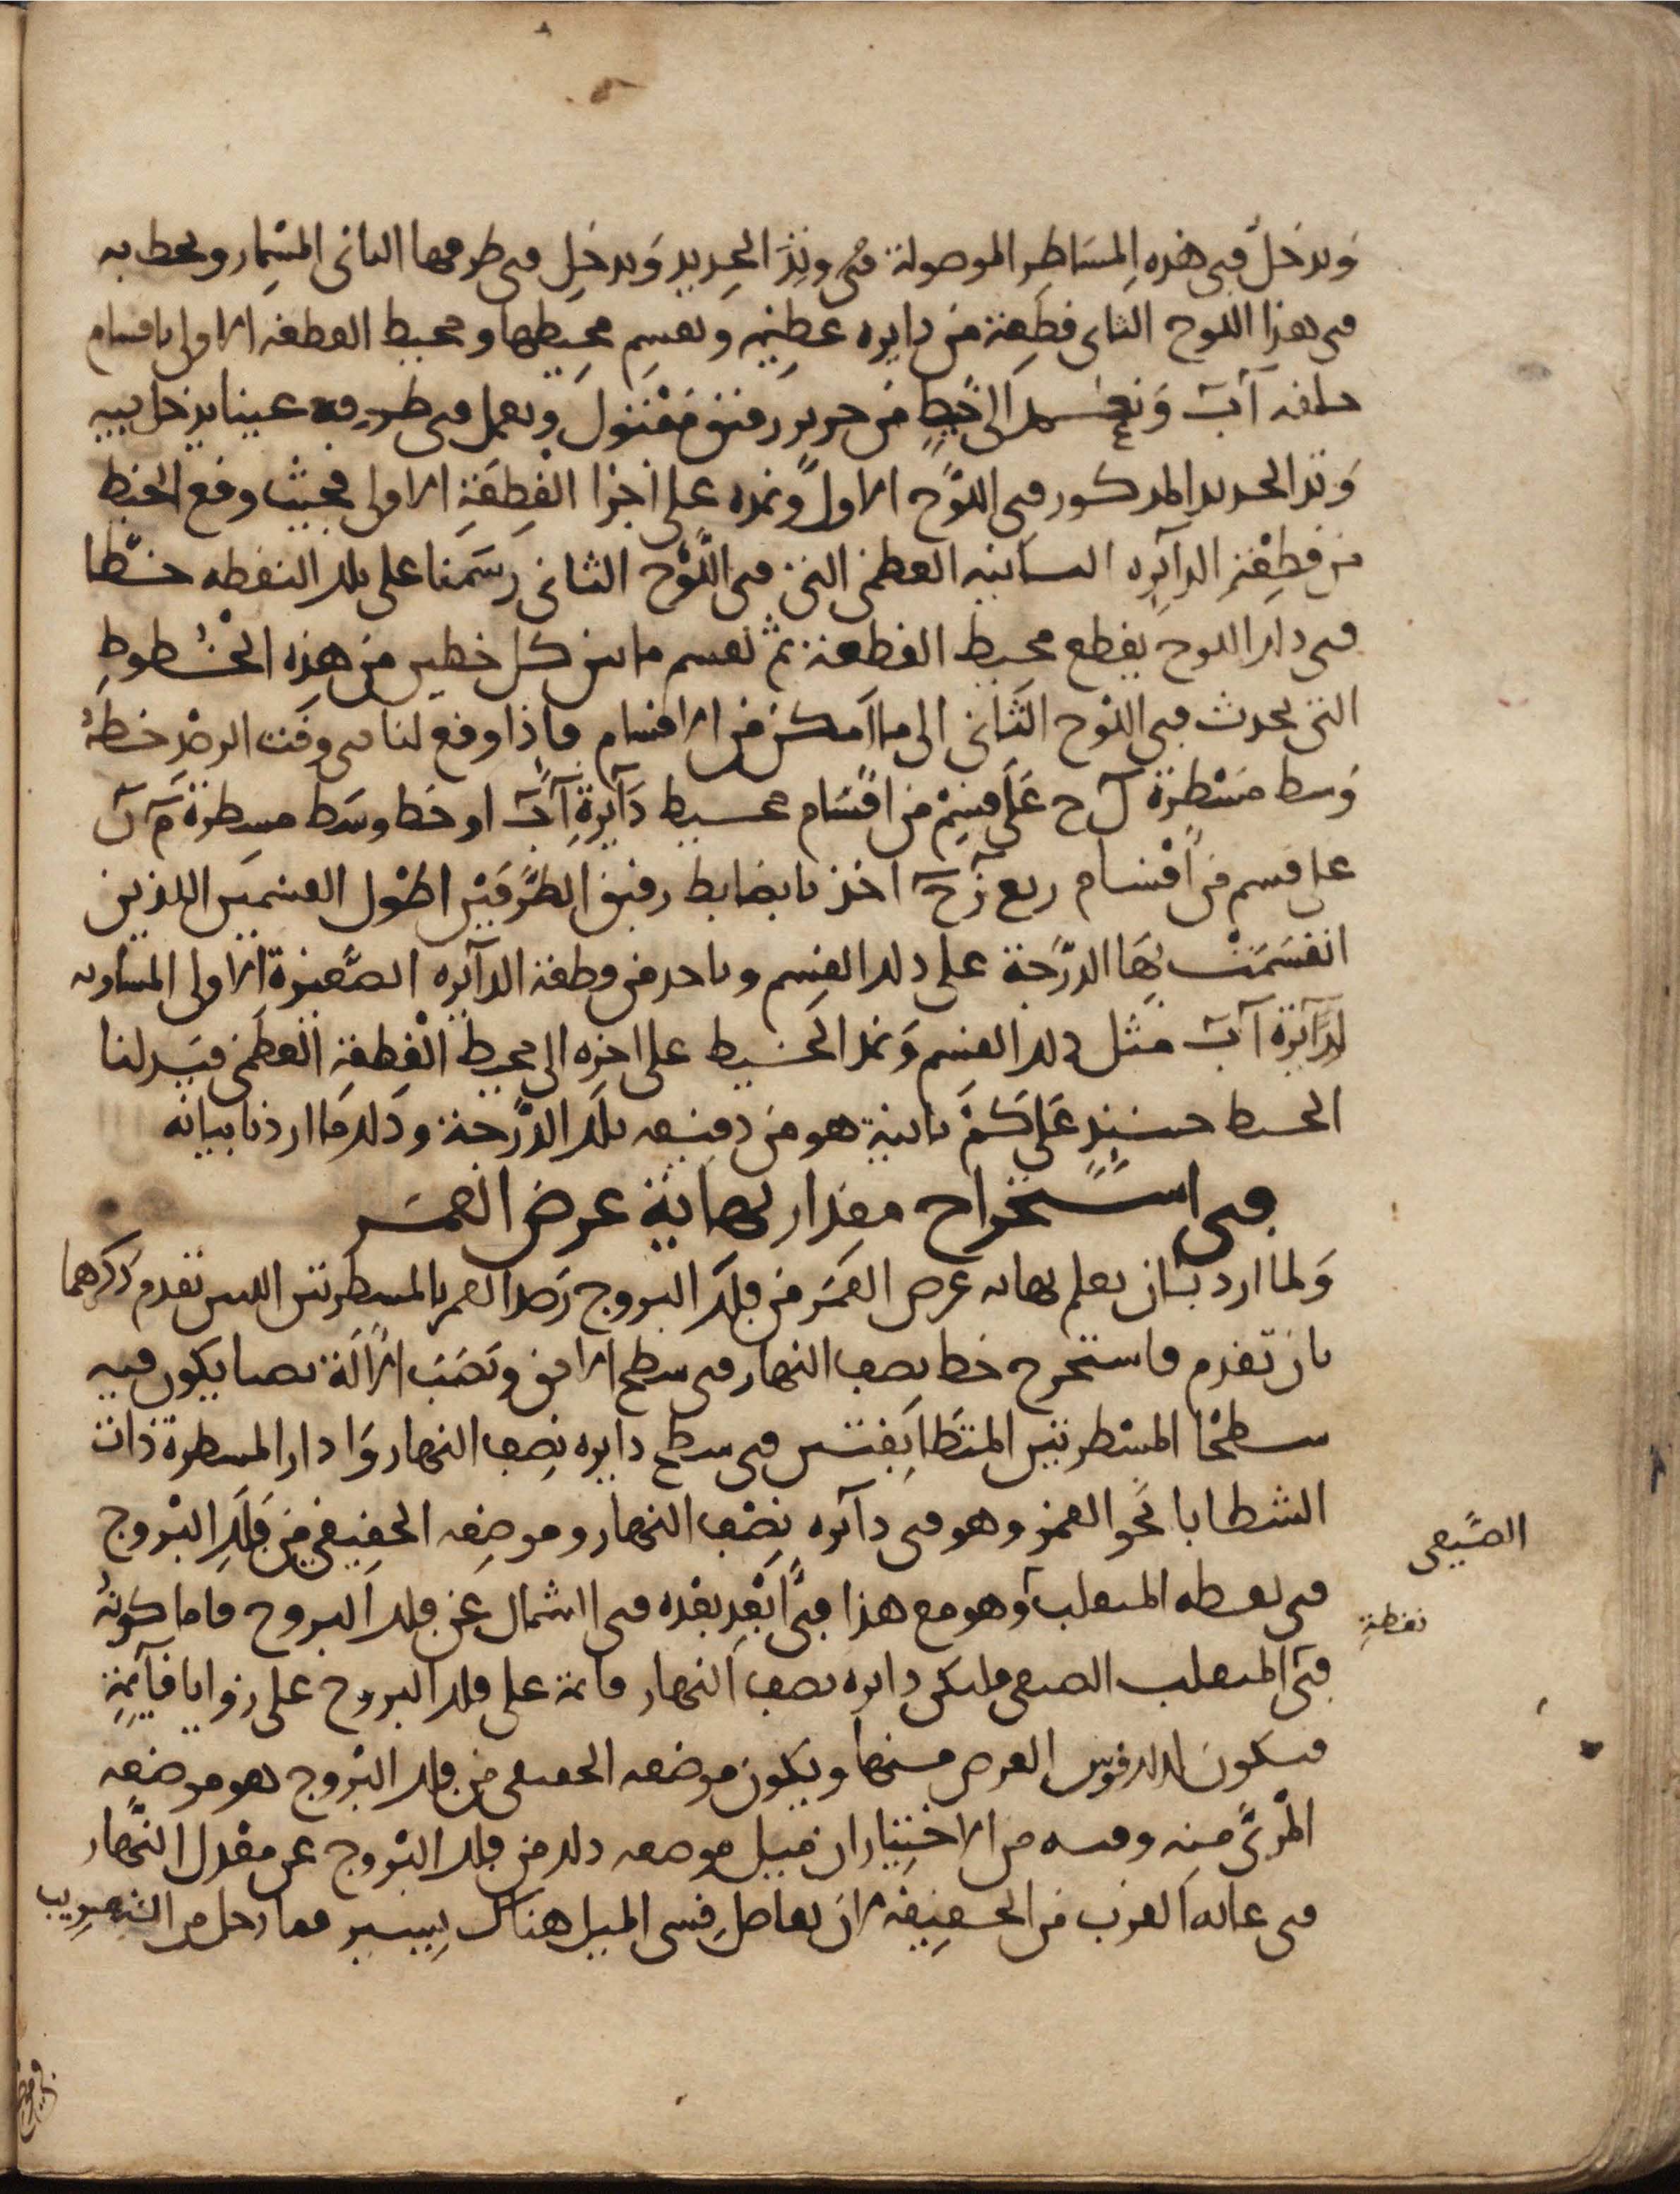 وندخل في هذه المساطر الموصولة في وتد الحديد وندخل في طرفها الثاني المسمار ونخط به
في هذا اللوح الثاني قطعة من دايره عظيمه ونقسم محيطها ومحيط القطعة الاولى باقسام
حلقه آب ونعمد الى خيط من حرير رقيق مفتول ونعمل في طرفه عينا يدخل فيه
وتد الحديد المذكور في اللوح الاول ونمده على اجزا القطعة الاولى فحيث وقع الخيط
من قطعة الدآيره الثانيه العظمى التي في اللوح الثاني رسمنا على تلك النقطه خطا
في ذلك اللوح يقطع محيط القطعة ثم نقسم ما بين كل خطين من هذه الخطوط
التي تحدث في اللوح الثاني الى ما امكن من الاقسام فاذا وقع لنا في وقت الرصد خط
وسط مسطرة ل ح على قسم من اقسام محيط دآيرة آب او خط وسط مسطرة م ن
على قسم من اقسام ربع زح اخذنا بضابط رقيق الطرفين اطول القسمين اللذين
انقسمت بها الدرجة على ذلك القسم وناخذ من قطعة الدآيره الصغيرة الاولى المساويه
لدآيرة آب مثل ذلك القسم ونمد الخيط على اخره الى محيط القطعة العظمى فيدلنا
الخيط حينئذ على كم ثانية هو من دقيقه تلك الدرجة وذلك ما اردنا بيانه
في استخراج مقدار نهاية عرض القمر
ولما اردت ان نعلم نهايه عرض القمر من فلك البروج رصد القمر بالمسطرتين اللتين تقدم ذكرهما
بان تقدم فاستخرج خط نصف النهار في سطح الافق ونصب الآلة نصبا يكون فيه
سطحا المسطرتين المتطابقتين في سطح دايره نصف النهار وادار المسطرة ذات
الشطايا نحو القمر وهو في دآيره نصف النهار وموضعه الحقيقي من فلك البروج
في نقطه المنقلب وهو مع هذا في ابعد بعده في الشمال عن فلك البروج فاما كونه
في المنقلب الصيفي فلتكن دايره نصف النهار قايمة على فلك البروج على زوايا قآيمة
فيكون لذلك قوس العرض منها ويكون موضعه الحقيقي من فلك البروج هو موضعه
المرئي منه وفيه من الاختيار ان ميل موضعه ذلك من فلك البروج عن معدل النهار
في غايه القرب من الحقيقة لان تفاضل قسي الميل هناك يسير فما دخل من التقريب
الصيفي
نقطة